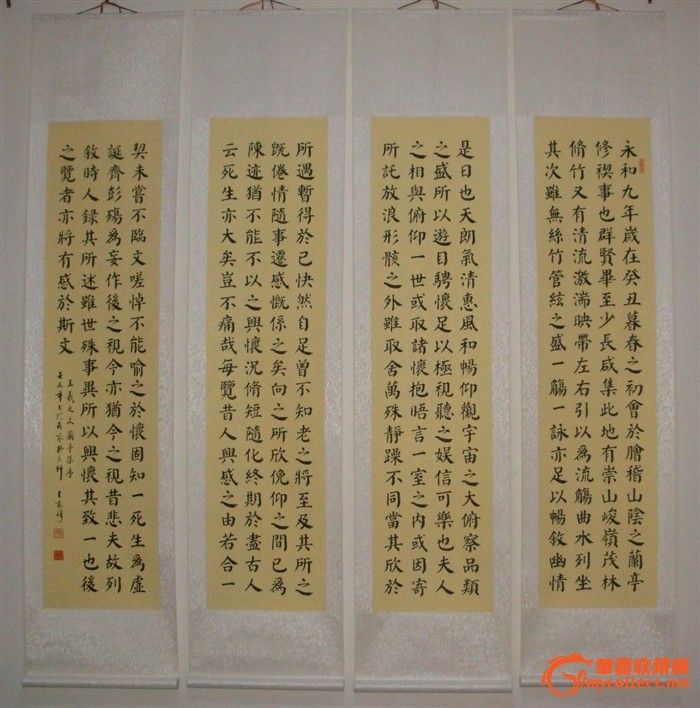 永和九年歲在癸丑暮春之初會於會稽山陰之蘭亭
修禊事也群賢畢至少長咸集此地有崇山峻嶺茂林
脩竹又有清流激湍映帶左右引以為流觴曲水列坐
其次雖無絲竹管絃之盛一觴一詠亦足以暢敘幽情
是日也天朗氣清惠風和暢仰觀宇宙之大俯察品類
之盛所以遊目騁懷足以極視聽之娱信可樂也夫人
之相與俯仰一世或取諸懷抱晤言一室之内或因寄
所託放浪形骸之外雖取舍萬殊靜躁不同當其欣於
所遇暫得於己快然自足曾不知老之將至及其所之
既倦情隨事遷感慨係之矣向之所欣俛仰之間已為
陳迹猶不能不以之興懷况脩短隨化終期於盡古人
云死生亦大矣豈不痛哉每覽昔人興感之由若合一
契未嘗不臨文嗟悼不能喻之於懷固知一死生為虛
誕齊彭殤為妄作後之視今亦猶今之視昔悲夫故列
敘時人録其所述雖世殊事異所以興懷其致一也後
之覽者亦將有感於斯文
王羲之文蘭亭集序
華夏收藏網
mycollect.net